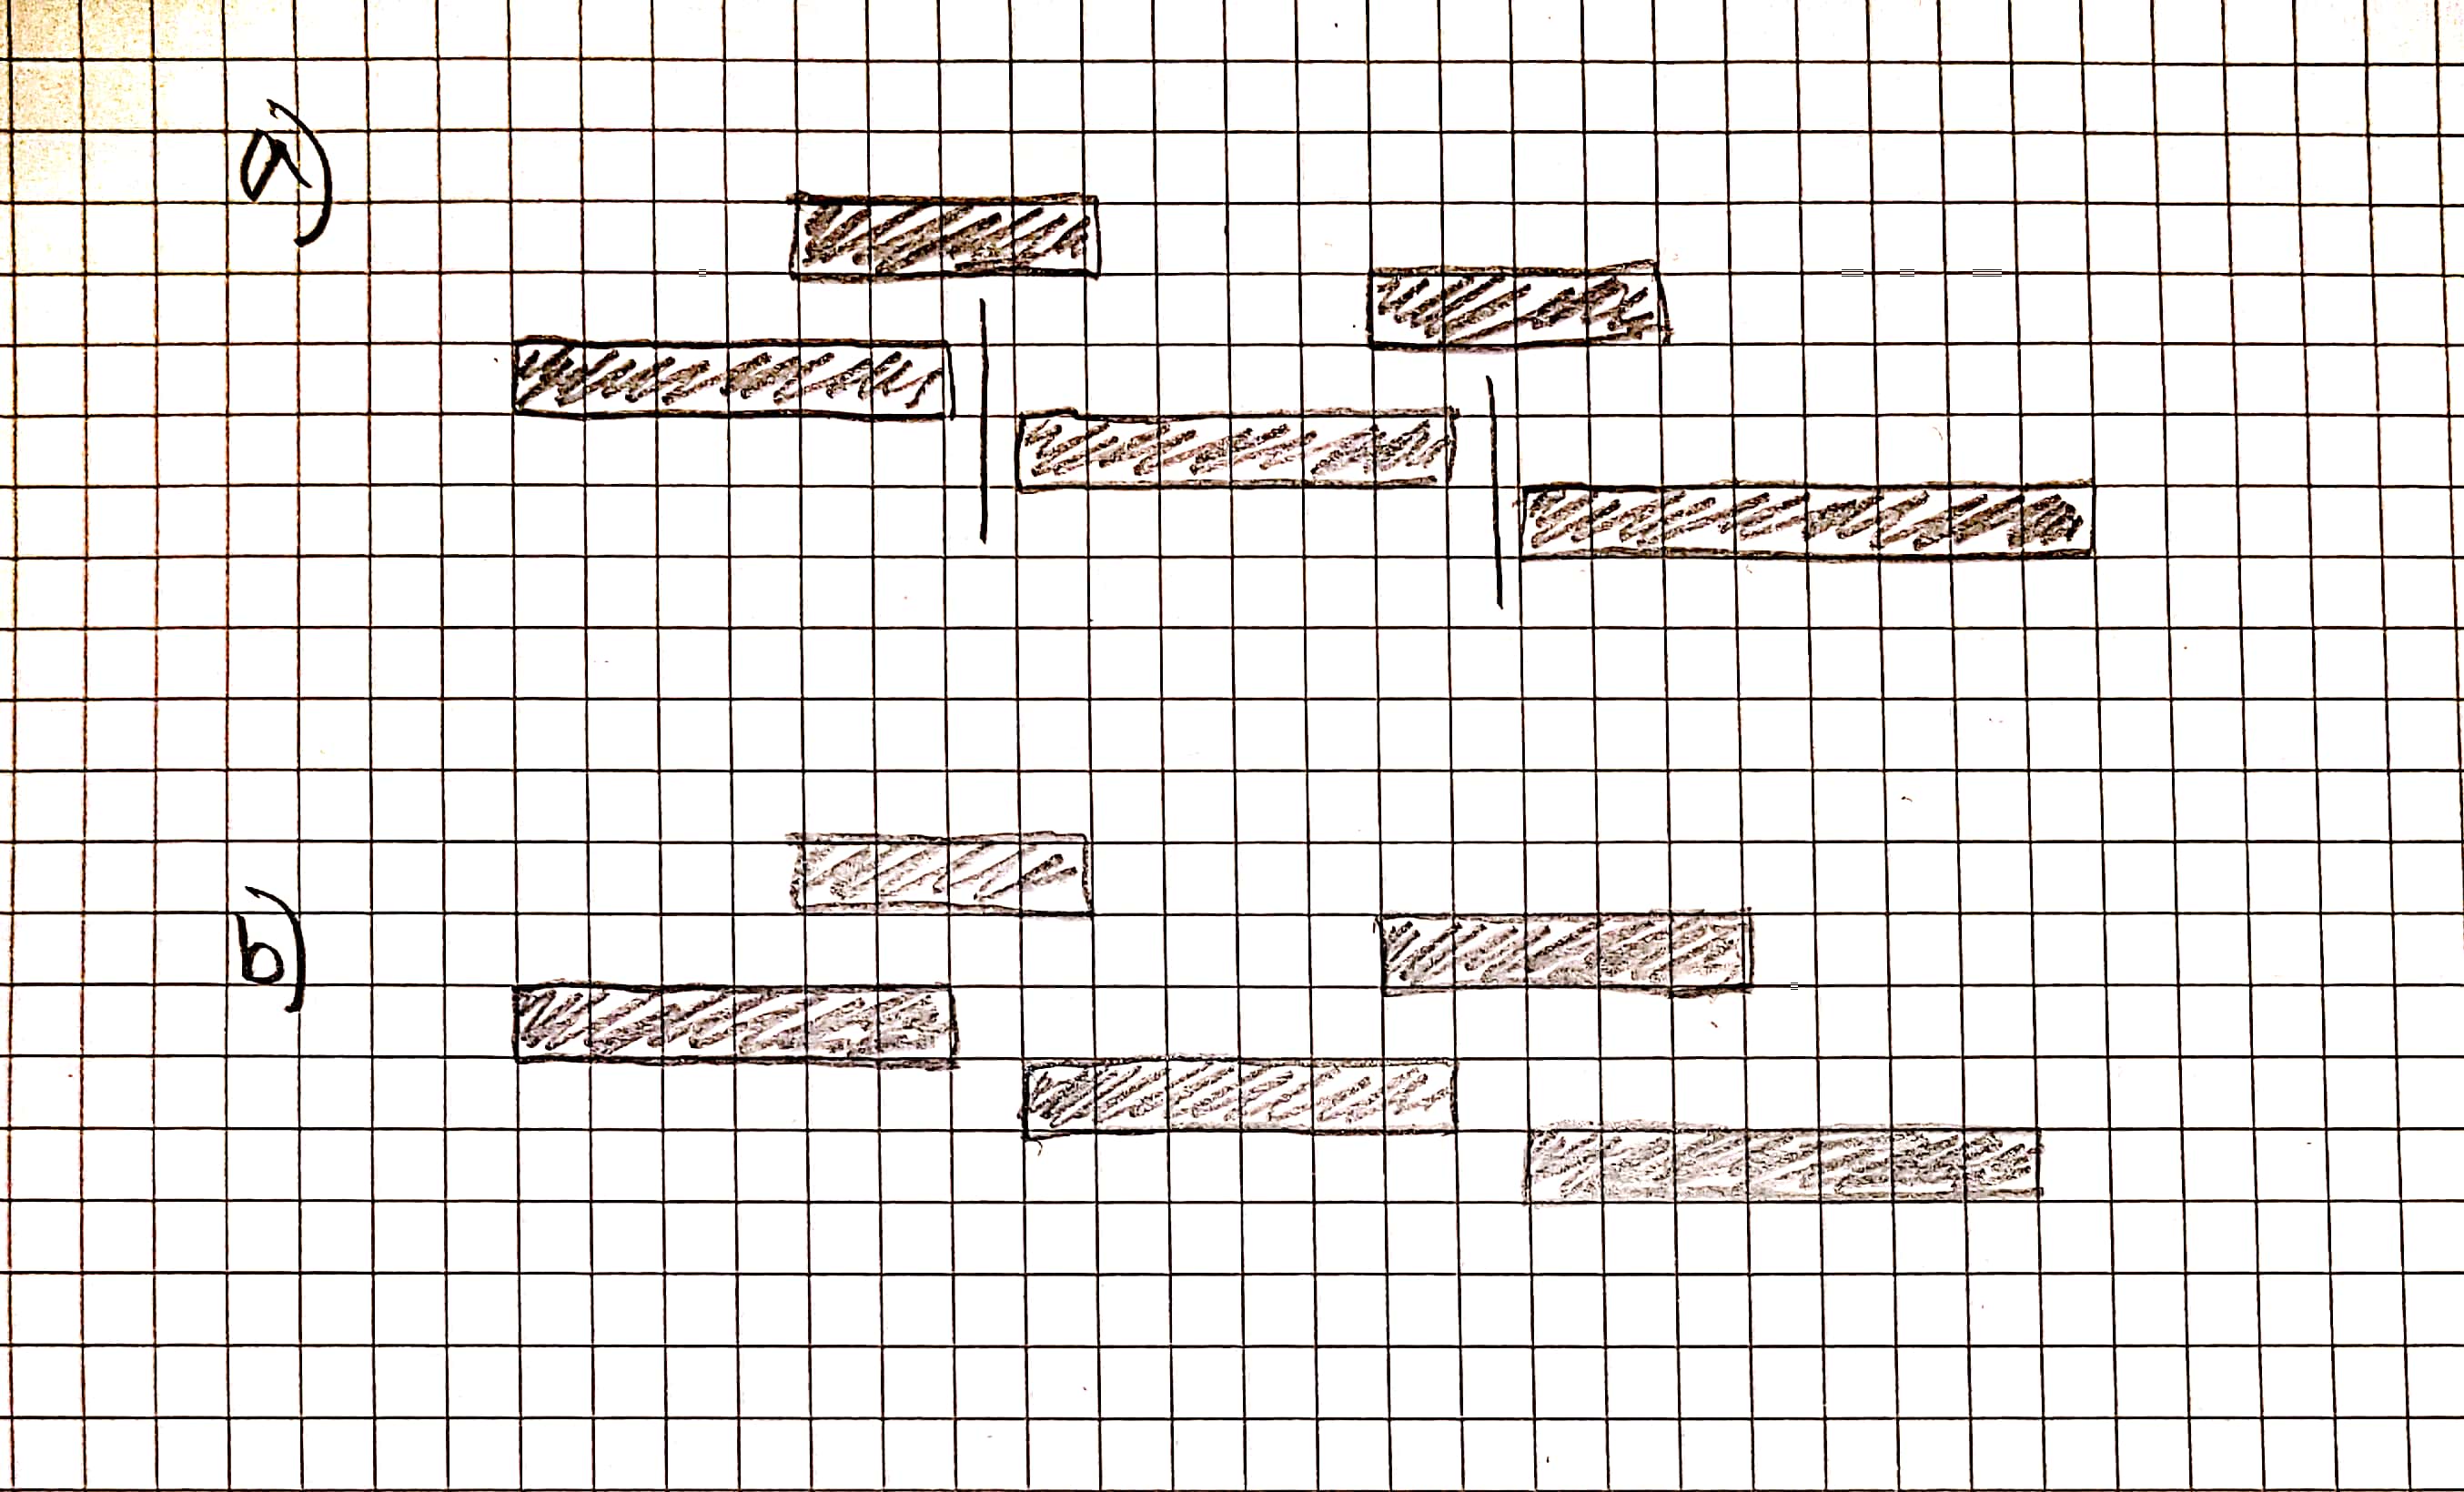 a)
b)